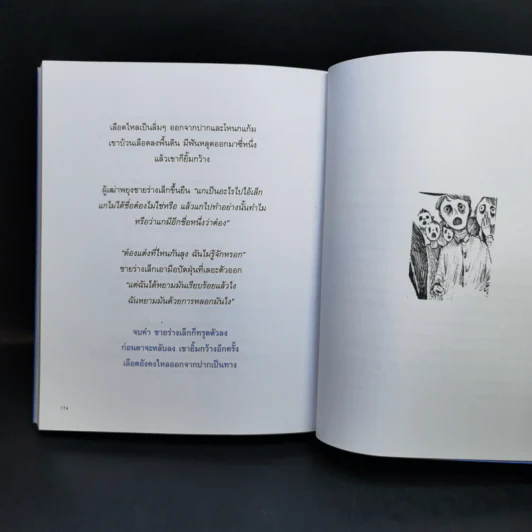 เลือดไหลเป็นลิ่มๆ ออกจากปากและโหนกแก้ม
เขาบ้วนเลือดลงพื้นดิน มีฟันหลุดออกมาซี่หนึ่ง
แล้วเขาก็ยิ้มกว้าง
ผู้เฒ่าพยุงชายร่างเล็กขึ้นยืน "แกเป็นอะไรไปไอ้เล็ก
แกไม่ได้ชื่อต้องไม่ใช่หรือ แล้วแกไปทำอย่างนั้นทำไม
หรือว่าแกมีอีกชื่อหนึ่งว่าต้อง"
"ต้องแต้งที่ไหนกันลุง ฉันไม่รู้จักหรอก"
ชายร่างเล็กเอามือปัดฝุ่นที่เลอะตัวออก
"แต่ฉันได้หยามมันเรียบร้อยแล้วไง
ฉันหยามมันด้วยการหลอกมันไง"
จบคำ ชายร่างเล็กก็ทรุดตัวลง
ก่อนตาจะหลับลง เขายิ้มกว้างอีกครั้ง
เลือดยังคงไหลออกจากปากเป็นทาง